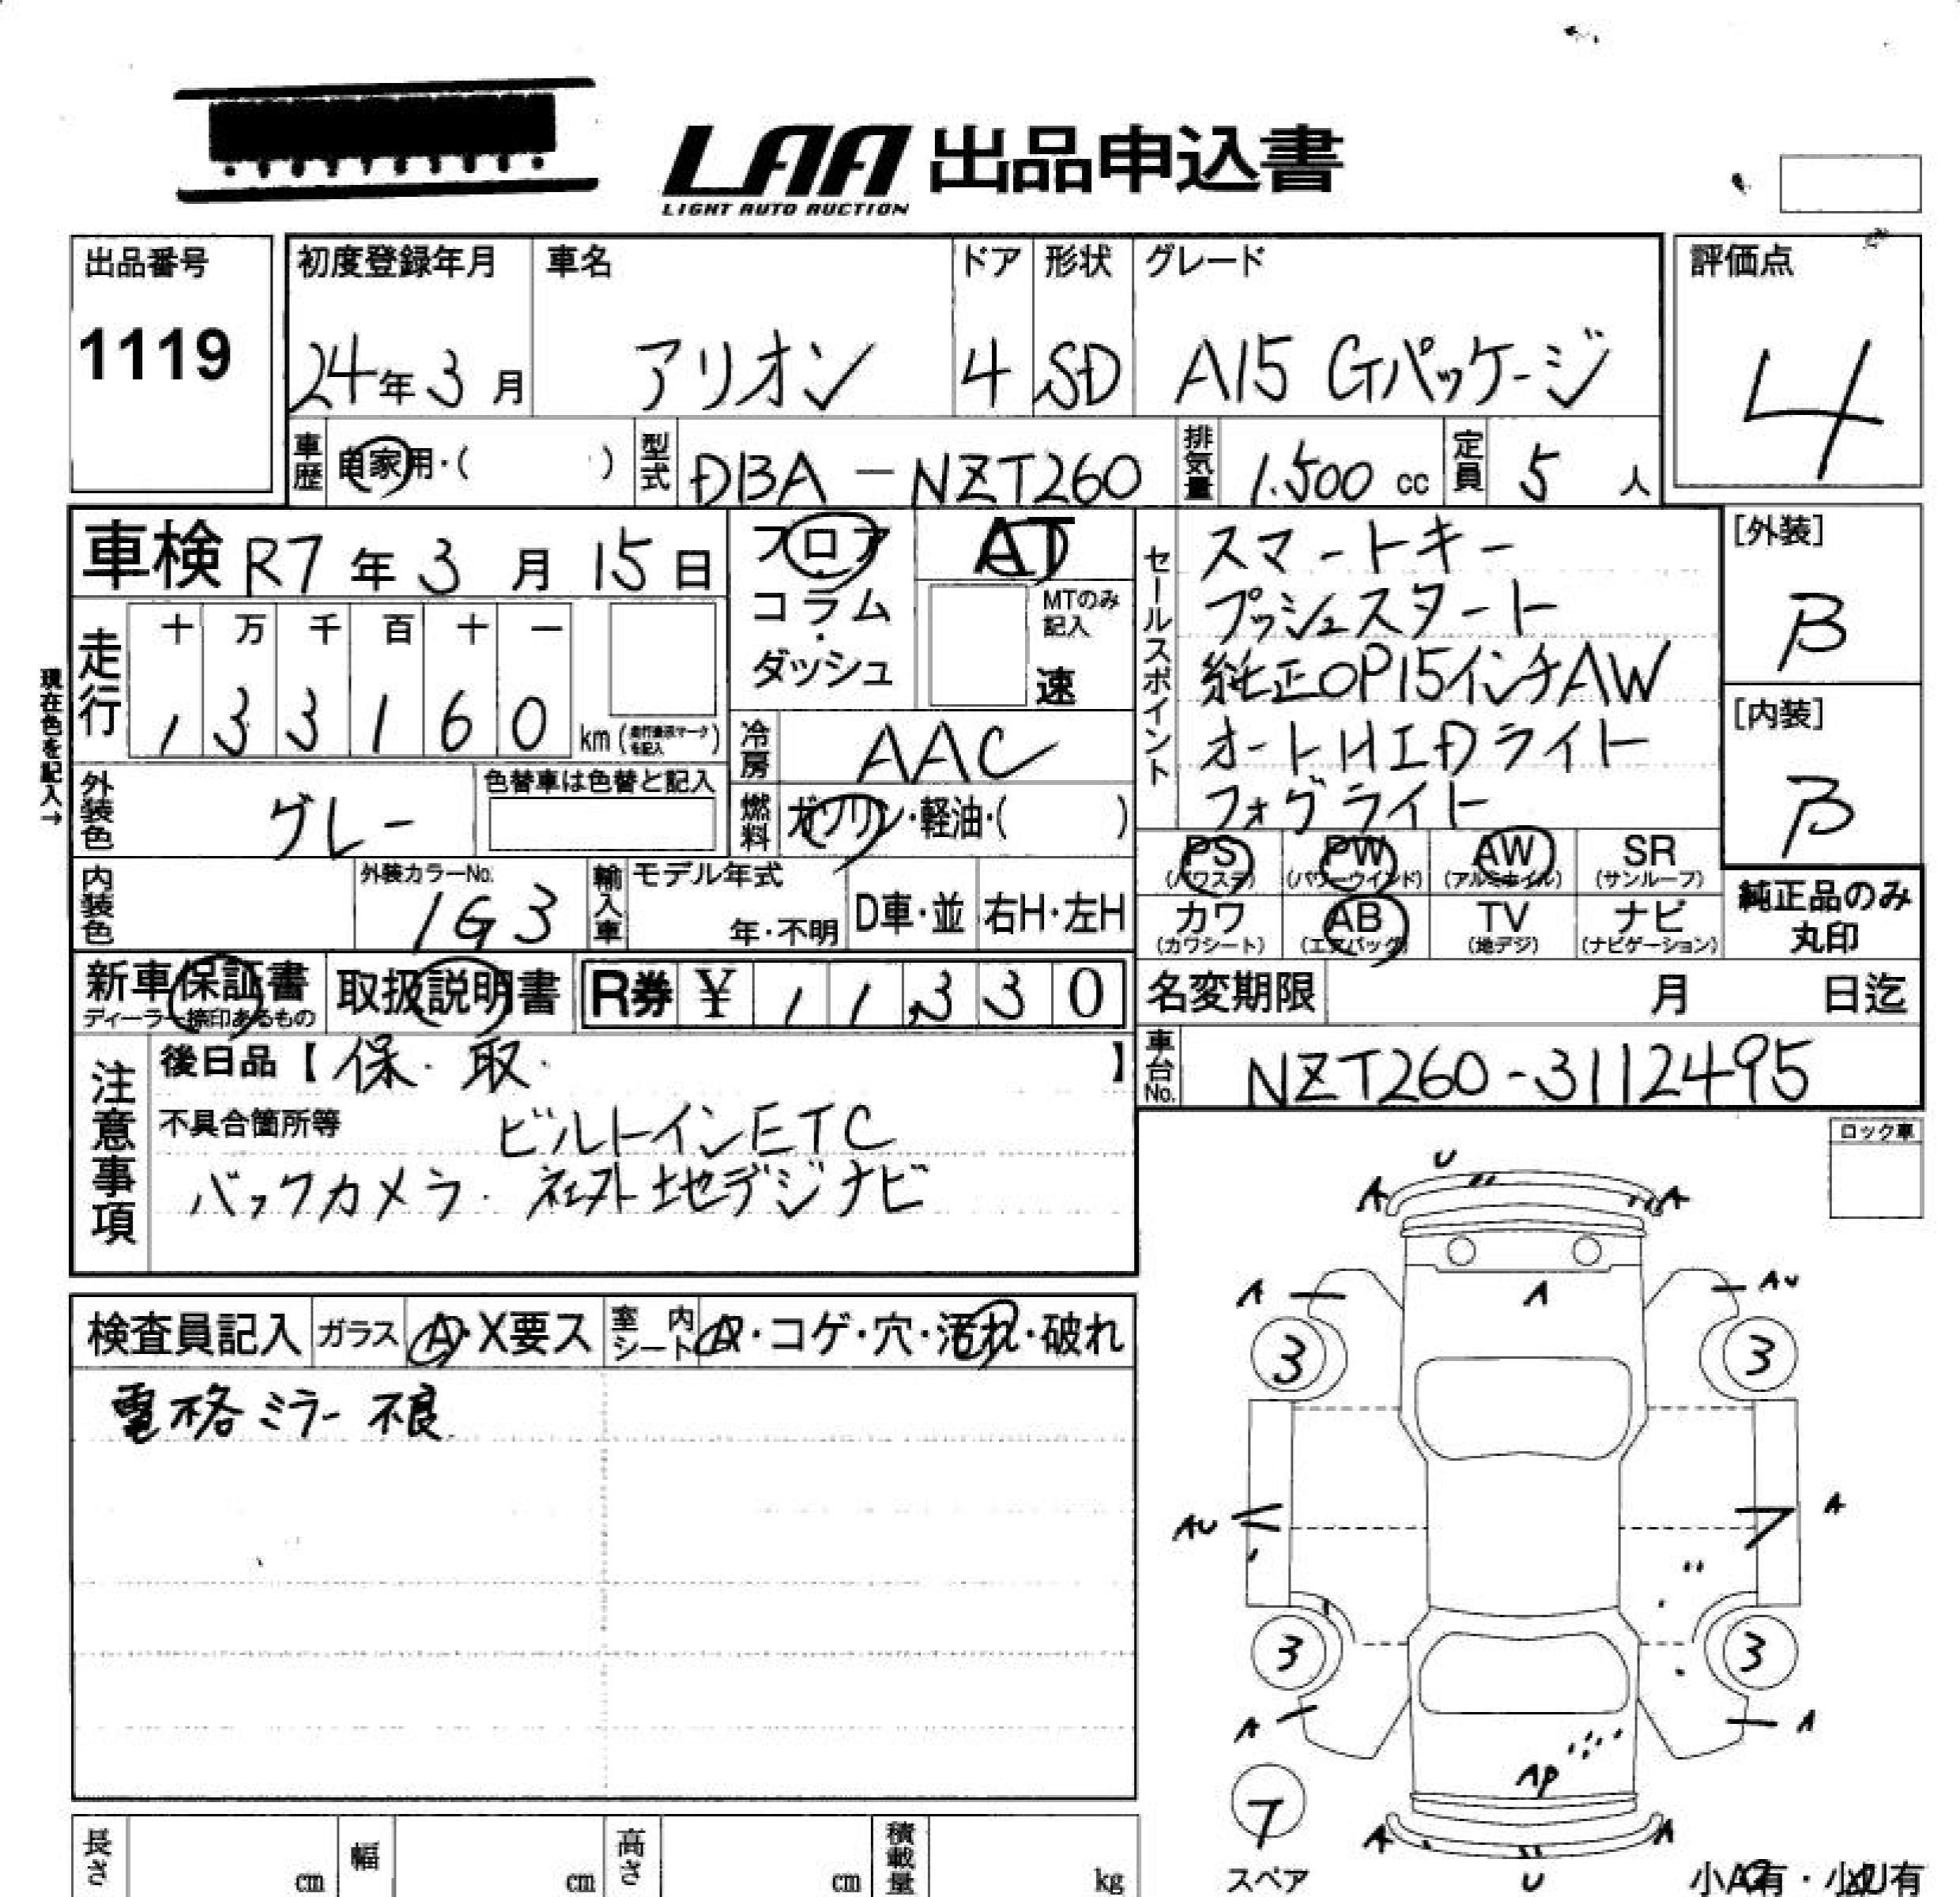 LAA 出品申込書
LIGHT AUTO AUCTION
出品番号
1119
初度登録年月
24年3月
車名
アリオン
ドア
4
形状
SD
グレード
A15 Gパッケージ
評価点
4
車歴
自家用・( )
型式
DBA-NZT260
排気量
1.500 cc
定員
5 人
車検 R7年3月15日
フロア
コラム
・
ダッシュ
AT
MTのみ
記入
速
セールスポイント
スマートキー
プッシュスタート
純正OP15インチAW
オートHIDライト
フォグライト
[外装]
B
[内装]
B
現在色を記入→
走行
十 万 千 百 十 一
1 3 3 1 6 0 km
冷房
AAC
外装色
グレー
色替車は色替と記入
燃料
ガソリン・軽油・( )
PS
(パワステ)
PW
(パワーウインド)
AW
(アルミホイル)
SR
(サンルーフ)
カワ
(カワシート)
AB
(エアバッグ)
TV
(地デジ)
ナビ
(ナビゲーション)
純正品のみ
丸印
内装色
外装カラーNo.
1G3
輸入車
モデル年式
年・不明
D車・並
右H・左H
新車保証書
ディーラー捺印あるもの
取扱説明書
R券 ¥ 1 1,3 3 0
名変期限 月 日迄
車台No.
NZT260-3112495
注意事項
後日品【保・取・】
不具合箇所等
ビルトインETC
バックカメラ・社外地デジナビ
ロック車
検査員記入
ガラス
A・X要ス
室内シート
A・コゲ・穴・汚れ・破れ
電格ミラー不良
U
A A
A A AU
3 3
AU A
3 3
A A
AP
7
スペア
A A
U
小A有・小U有
長さ cm
幅 cm
高さ cm
積載量 kg